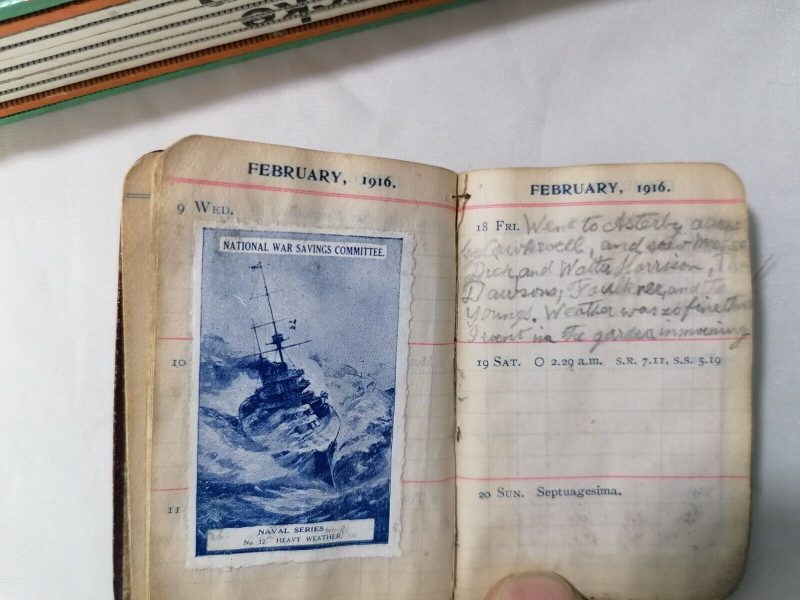 FEBRUARY, 1916.
9 WED.
NATIONAL WAR SAVINGS COMMITTEE.
10
11
NAVAL SERIES
No. 12. HEAVY WEATHER.
FEBRUARY, 1916.
18 FRI. Went to Asterby
by Cawkwell, and saw
Dick and Walter Harrison, The
Dawsons, Faulkner, and the
Youngs. Weather was so fine that
I went in the garden in morning
19 SAT. O 2.29 a.m. S.R. 7.11, S.S. 5.19
20 SUN. Septuagesima.